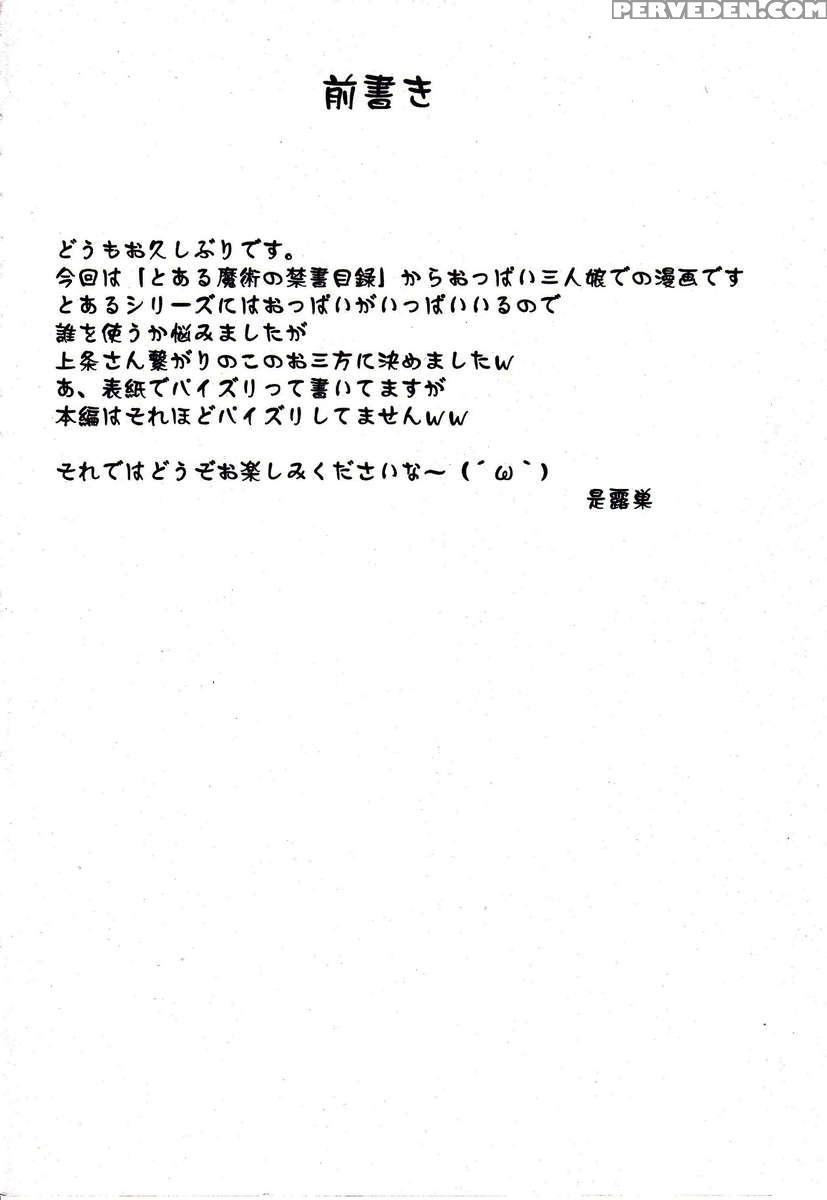 PERVEDEN.COM
前書き
どうもお久しぶりです。
今回は「とある魔術の禁書目録」からおっぱい三人娘での漫画です
とあるシリーズにはおっぱいがいっぱいいるので
誰を使うか悩みましたが
上条さん繋がりのこのお三方に決めましたｗ
あ、表紙でパイズリって書いてますが
本編はそれほどパイズリしてませんｗｗ
それではどうぞお楽しみくださいな～（´ω｀）
是露巣